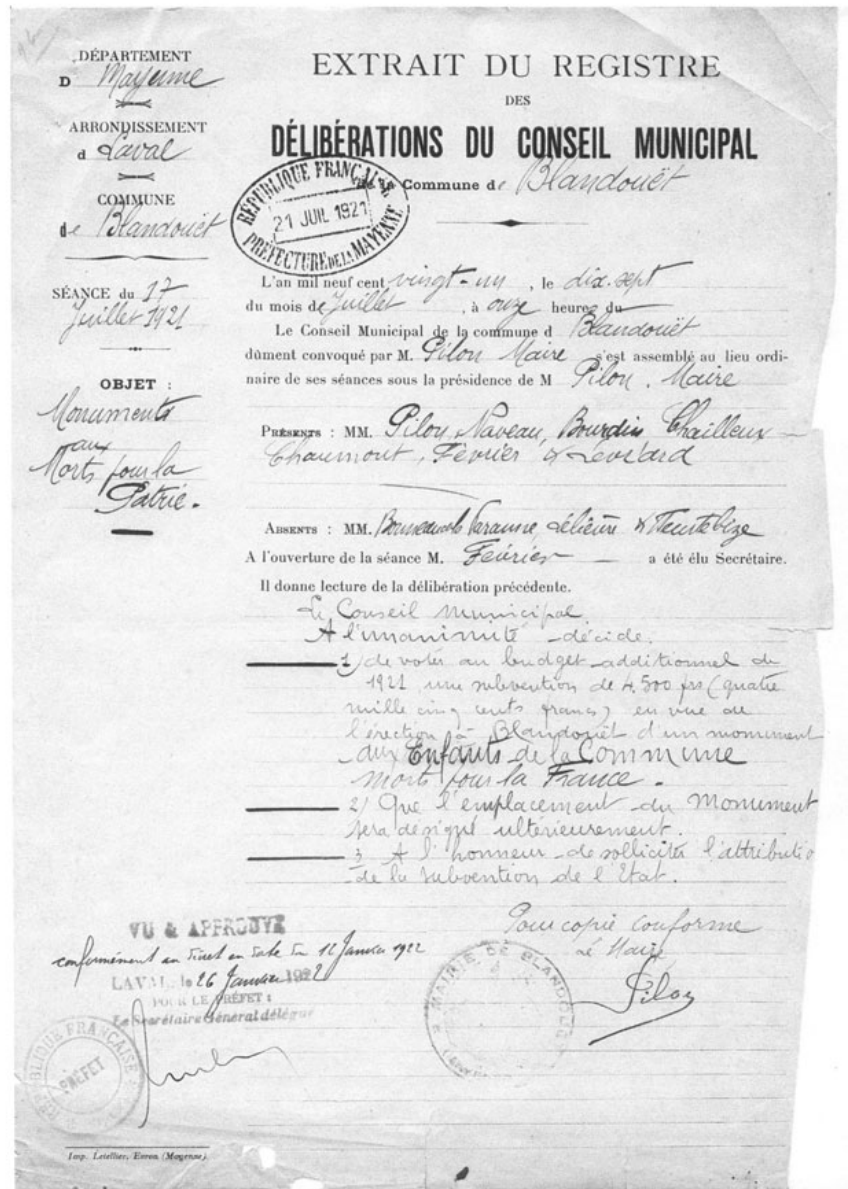 DÉPARTEMENT
D Mayenne
ARRONDISSEMENT
d Laval
COMMUNE
de Blandouët
SÉANCE du 17
Juillet 1921
OBJET :
Monuments
aux
Morts pour la
Patrie.
EXTRAIT DU REGISTRE
DES
DÉLIBÉRATIONS DU CONSEIL MUNICIPAL
de la Commune de Blandouët
RÉPUBLIQUE FRANÇAISE
21 JUIL 1921
PRÉFECTURE DE LA MAYENNE
L'an mil neuf cent vingt-un, le dix-sept
du mois de Juillet, à onze heures du
Le Conseil Municipal de la commune d Blandouët
dûment convoqué par M. Pilon Maire s'est assemblé au lieu ordi-
naire de ses séances sous la présidence de M Pilon. Maire
PRÉSENTS : MM. Pilon, Naveau, Bourdin Chailleux
Chaumont, Février &
ABSENTS : MM. Lelièvre &
A l'ouverture de la séance M. Février a été élu Secrétaire.
Il donne lecture de la délibération précédente.
Le Conseil Municipal
A l'unanimité décide.
1) de voter au budget additionnel de
1921 une subvention de 4.500 frs (quatre
mille cinq cents francs) en vue de
l'érection à Blandouët d'un monument
aux Enfants de la Commune
morts pour la France.
2) Que l'emplacement du Monument
sera désigné ultérieurement.
3 A l'honneur de solliciter l'attributio
de la subvention de l'Etat.
Pour copie conforme
Le Maire
Pilon
MAIRIE DE BLANDOUET
VU & APPROUVÉ
conformément au décret en date du 12 Janvier 1922
LAVAL, le 26 Janvier 1922
POUR LE PRÉFET :
Le Secrétaire Général délégué
RÉPUBLIQUE FRANÇAISE
PRÉFET
Imp. Letellier, Evron (Mayenne)